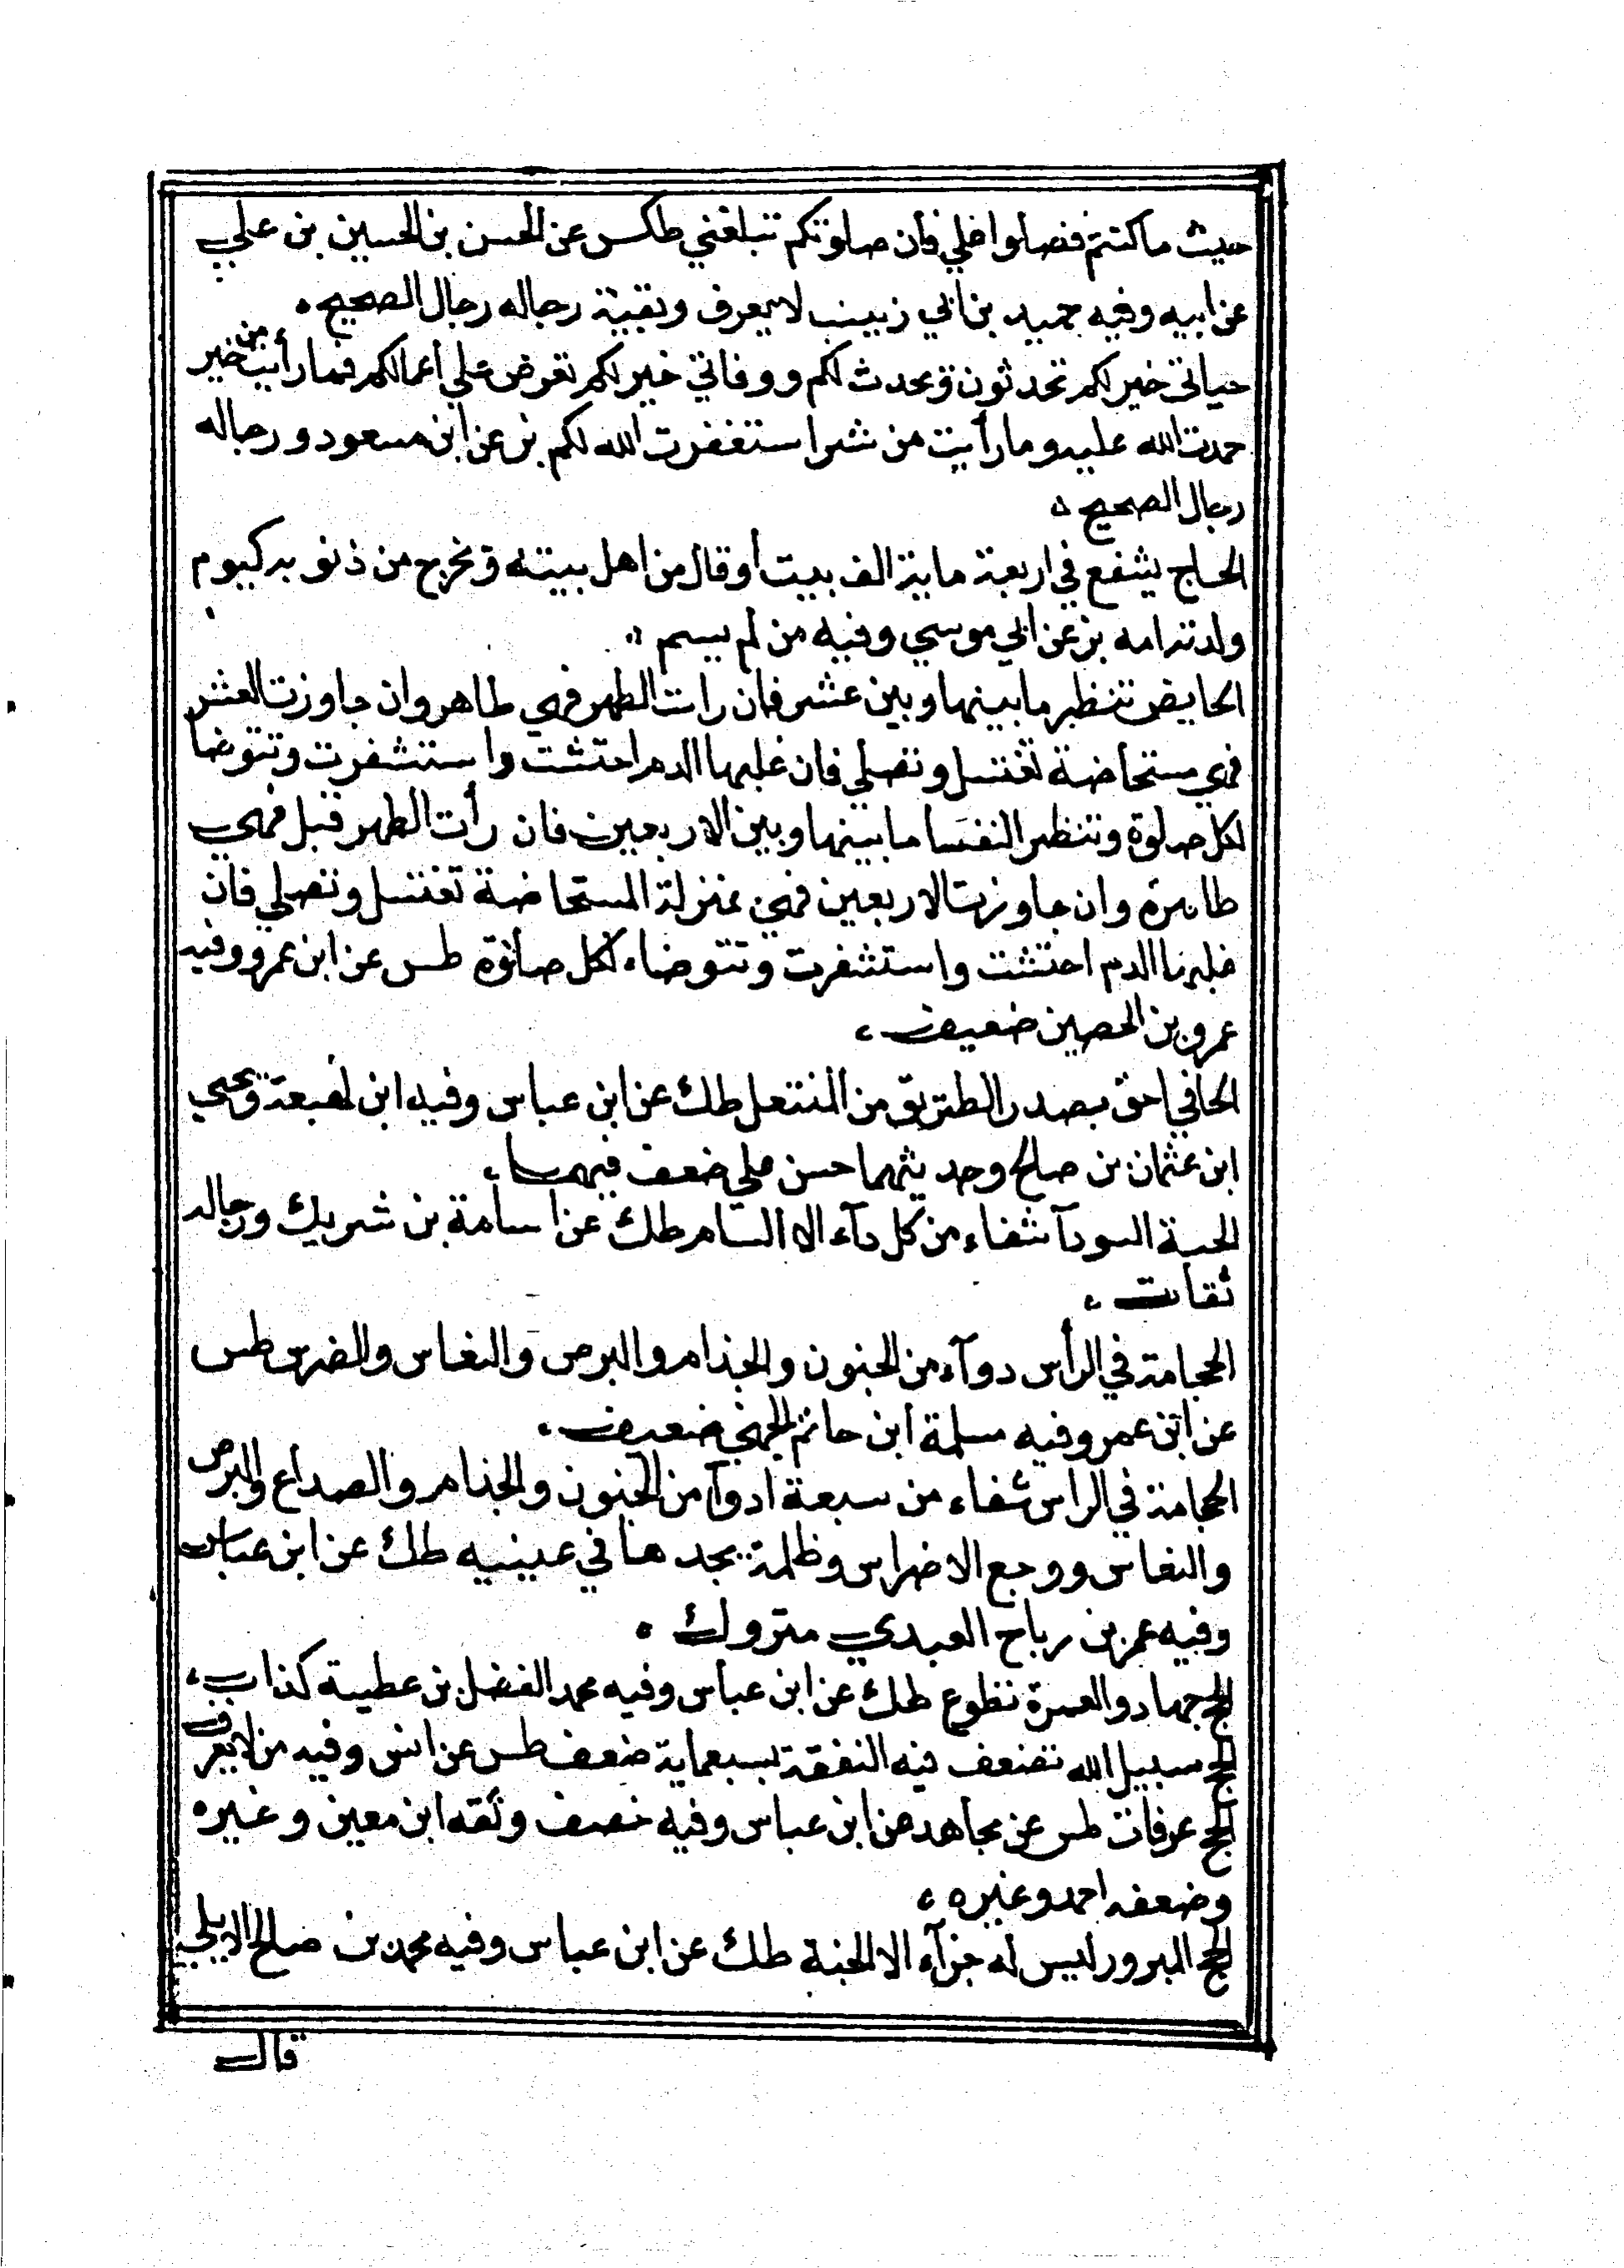 حيث ما كنتم فصلوا علي فأن صلوتكم تبلغني طكس عن الحسن بن الحسين بن علي
عن ابيه وفيه حميد بن ابي زينب لا يعرف وبقية رجاله رجال الصحيح ٠
حياتي خير لكم تحدثون ويحدث لكم ووفاتي خير لكم تعرض علي أعمالكم فما رأيت من خير
حمدت الله عليه وما رأيت من شر استغفرت الله لكم بز عن ابن مسعود ورجاله
رجال الصحيح ٥
الحاج يشفع في اربعة ماية الف بيت أو قال من اهل بيته ويخرج من ذنوبه كيوم
ولدته امه بز عن ابي موسي وفيه من لم يسم ٥
الحايض تنتظر ما بينها وبين عشر فان رات الطهر فهي طاهر وان جاوزت العشر
فهي مستحاضة تغتسل وتصلي فان غلبها الدم احتشت واستشفرت وتتوضا
لكل صلوة وتنتظر النفسا ما بينها وبين الاربعين فان رأت الطهر قبل فهي
طاهرة وان جاوزت الاربعين فهي بمنزلة المستحاضة تغتسل وتصلي فان
غلبها الدم احتشت واستشفرت وتتوضاء لكل صلوة طس عن ابن عمرو وفيه
عمرو بن الحصين ضعيف ،
الحافي احق بصدر الطريق من المنتعل طك عن ابن عباس وفيه ابن لهيعة ويحيي
ابن عثمان بن صالح وحديثهما حسن علي ضعف فيهما ،
الحبة السودآ شفاء من كل دآء الا السام طك عن اسامة بن شريك ورجاله
ثقات ،
الحجامة في الرأس دوآء من الجنون والجذام والبرص والنعاس والضرس طس
عن ابن عمر وفيه مسلمة ابن حاتم الجهني ضعيف ٠
الحجامة في الراس شفاء من سبعة ادوآ من الجنون والجذام والصداع والبرص
والنعاس ووجع الاضراس وظلمة يجدها في عينيه طك عن ابن عباس
وفيه عمر بن رباح العبدي متروك ٠
الحج جهاد والعمرة تطوع طك عن ابن عباس وفيه محمد الفضل بن عطية كذاب ،
الحج سبيل الله تضعف فيه النفقة بسبعماية ضعف طس عن انس وفيه من لا يعرف
الحج عرفات طس عن مجاهد عن ابن عباس وفيه خصف وثقه ابن معين وغيره
وضعفه احمد وغيره ،
الحج المبرور ليس له جزآء الا الجنة طك عن ابن عباس وفيه محمد بن صالح الايلي
قال